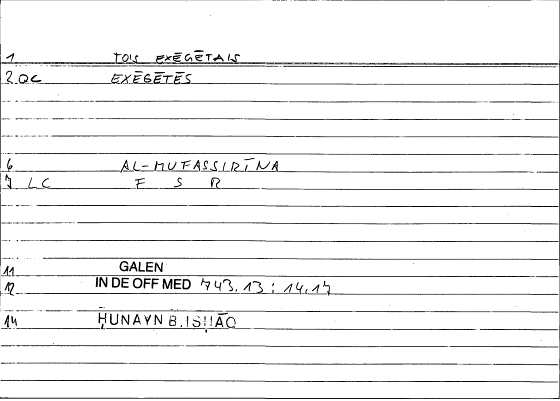 1 TOIS EXĒGĒTAIS
2 QC EXĒGĒTĒS
6 AL-MUFASSIRĪNA
7 LC F S R
11 GALEN
12 IN DE OFF MED 743.13 : 14.17
14 ḤUNAYN B.ISḤĀQ